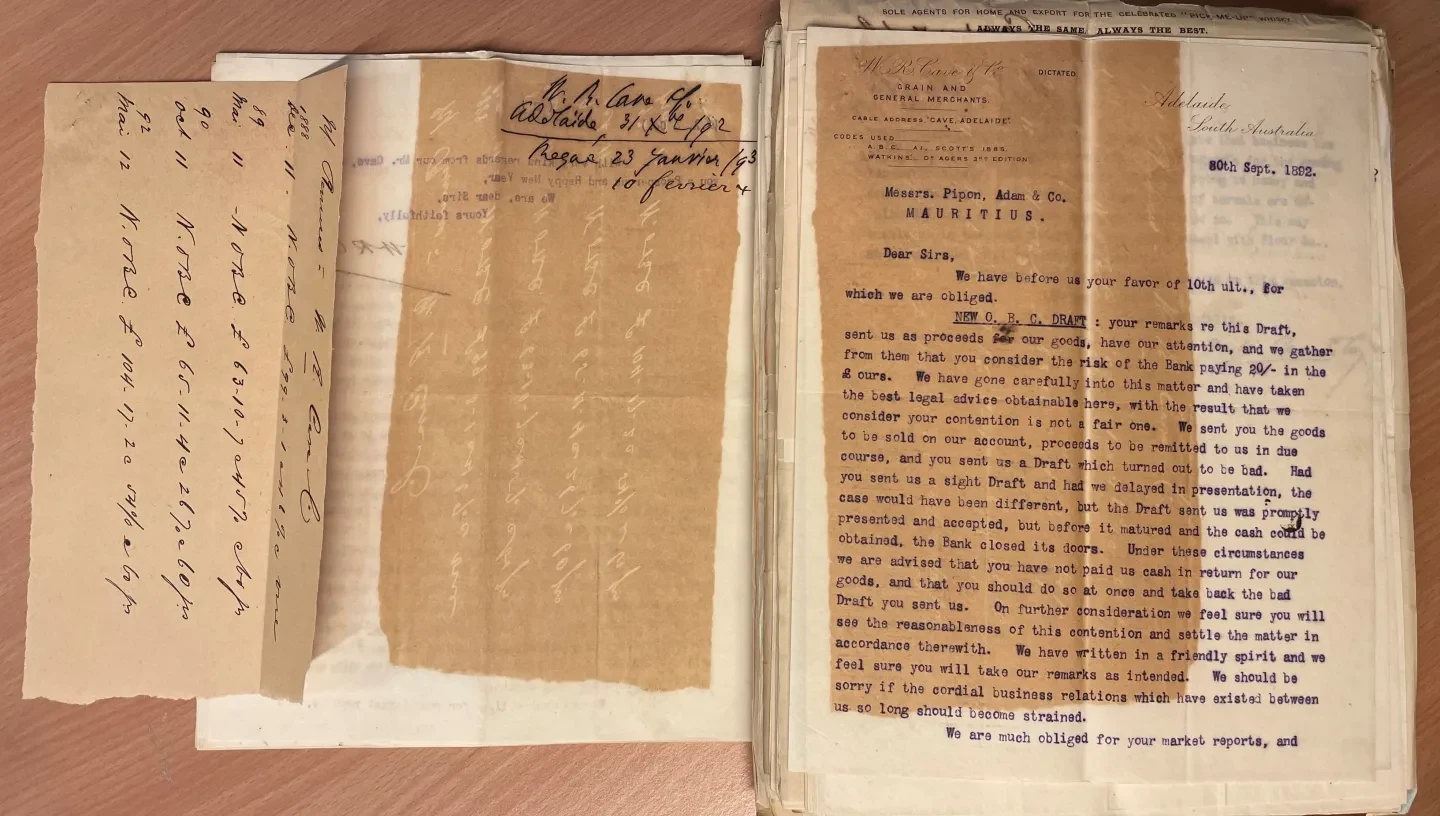 SOLE AGENTS FOR HOME AND EXPORT FOR THE CELEBRATED "PICK-ME-UP" WHISKY
ALWAYS THE SAME, ALWAYS THE BEST.
W. R. Cave & Co
DICTATED
GRAIN AND
GENERAL MERCHANTS.
CABLE ADDRESS, "CAVE, ADELAIDE".
CODES USED
A.B.C. A1. SCOTT'S 1885.
WATKINS. DE AGERS 3RD EDITION.
Adelaide,
South Australia
30th Sept. 1892.
Messrs. Pipon, Adam & Co.
MAURITIUS.
Dear Sirs,
We have before us your favor of 10th ult., for
which we are obliged.
NEW O. B. C. DRAFT : your remarks re this Draft,
sent us as proceeds for our goods, have our attention, and we gather
from them that you consider the risk of the Bank paying 20/- in the
£ ours. We have gone carefully into this matter and have taken
the best legal advice obtainable here, with the result that we
consider your contention is not a fair one. We sent you the goods
to be sold on our account, proceeds to be remitted to us in due
course, and you sent us a Draft which turned out to be bad. Had
you sent us a sight Draft and had we delayed in presentation, the
case would have been different, but the Draft sent us was promptly
presented and accepted, but before it matured and the cash could be
obtained, the Bank closed its doors. Under these circumstances
we are advised that you have not paid us cash in return for our
goods, and that you should do so at once and take back the bad
Draft you sent us. On further consideration we feel sure you will
see the reasonableness of this contention and settle the matter in
accordance therewith. We have written in a friendly spirit and we
feel sure you will take our remarks as intended. We should be
sorry if the cordial business relations which have existed between
us so long should become strained.
We are much obliged for your market reports, and
W. R. Cave & Co.
Adelaide, 31 Xbre/92
23 Janvier/93
10 fevrier
records from our Mr. Cave,
and Happy New Year,
We are, dear Sir,
Yours faithfully,
W. R. Cave
1888
Dec. 11 - N.OBC
89
Mai 11 - N OBC £ 63-10-7
90
Oct 11 N.OBC £ 65-11-4
92
Mai 12 N.OBC £ 104-17.2